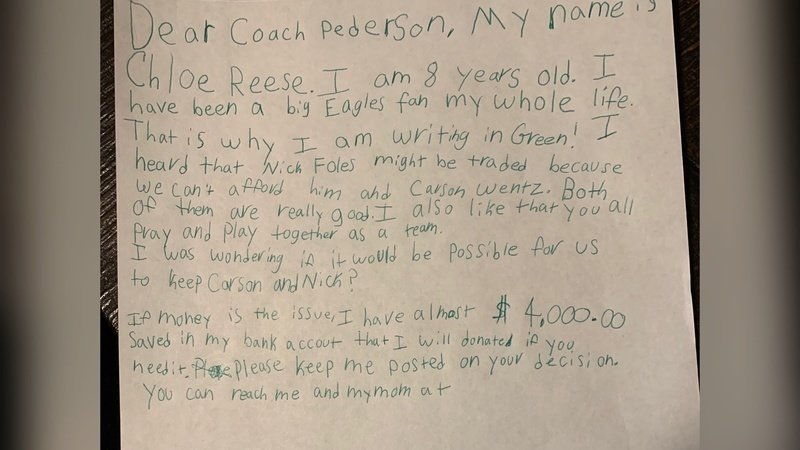 Dear Coach Pederson, My name is
Chloe Reese. I am 8 years old. I
have been a big Eagles fan my whole life.
That is why I am writing in Green! I
heard that Nick Foles might be traded because
we can't afford him and Carson Wentz. Both
of them are really good. I also like that you all
pray and play together as a team.
I was wondering if it would be possible for us
to keep Carson and Nick?
If money is the issue, I have almost $ 4,000.00
Saved in my bank accout that I will donated if you
need it. Please keep me posted on your decision.
You can reach me and my mom at